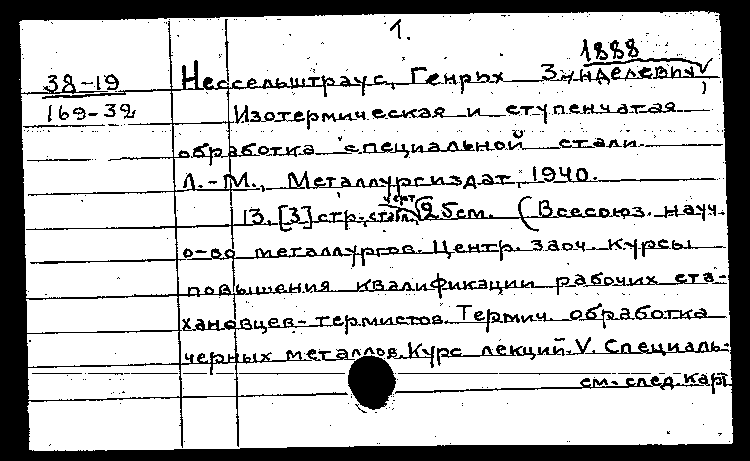 1.
1888
38-19 Нессельштраус, Генрих Зинделевич,
169-32 Изотермическая и ступенчатая
обработка специальной стали.
Л.-М., Металлургиздат, 1940.
черт.
13, [3] стр., 25см. (Всесоюз. науч.
о-во металлургов. Центр. заоч. курсы
повышения квалификации рабочих ста-
хановцев-термистов. Термич. обработка
черных металлов. Курс лекций. V. Специаль-
см. след. карт